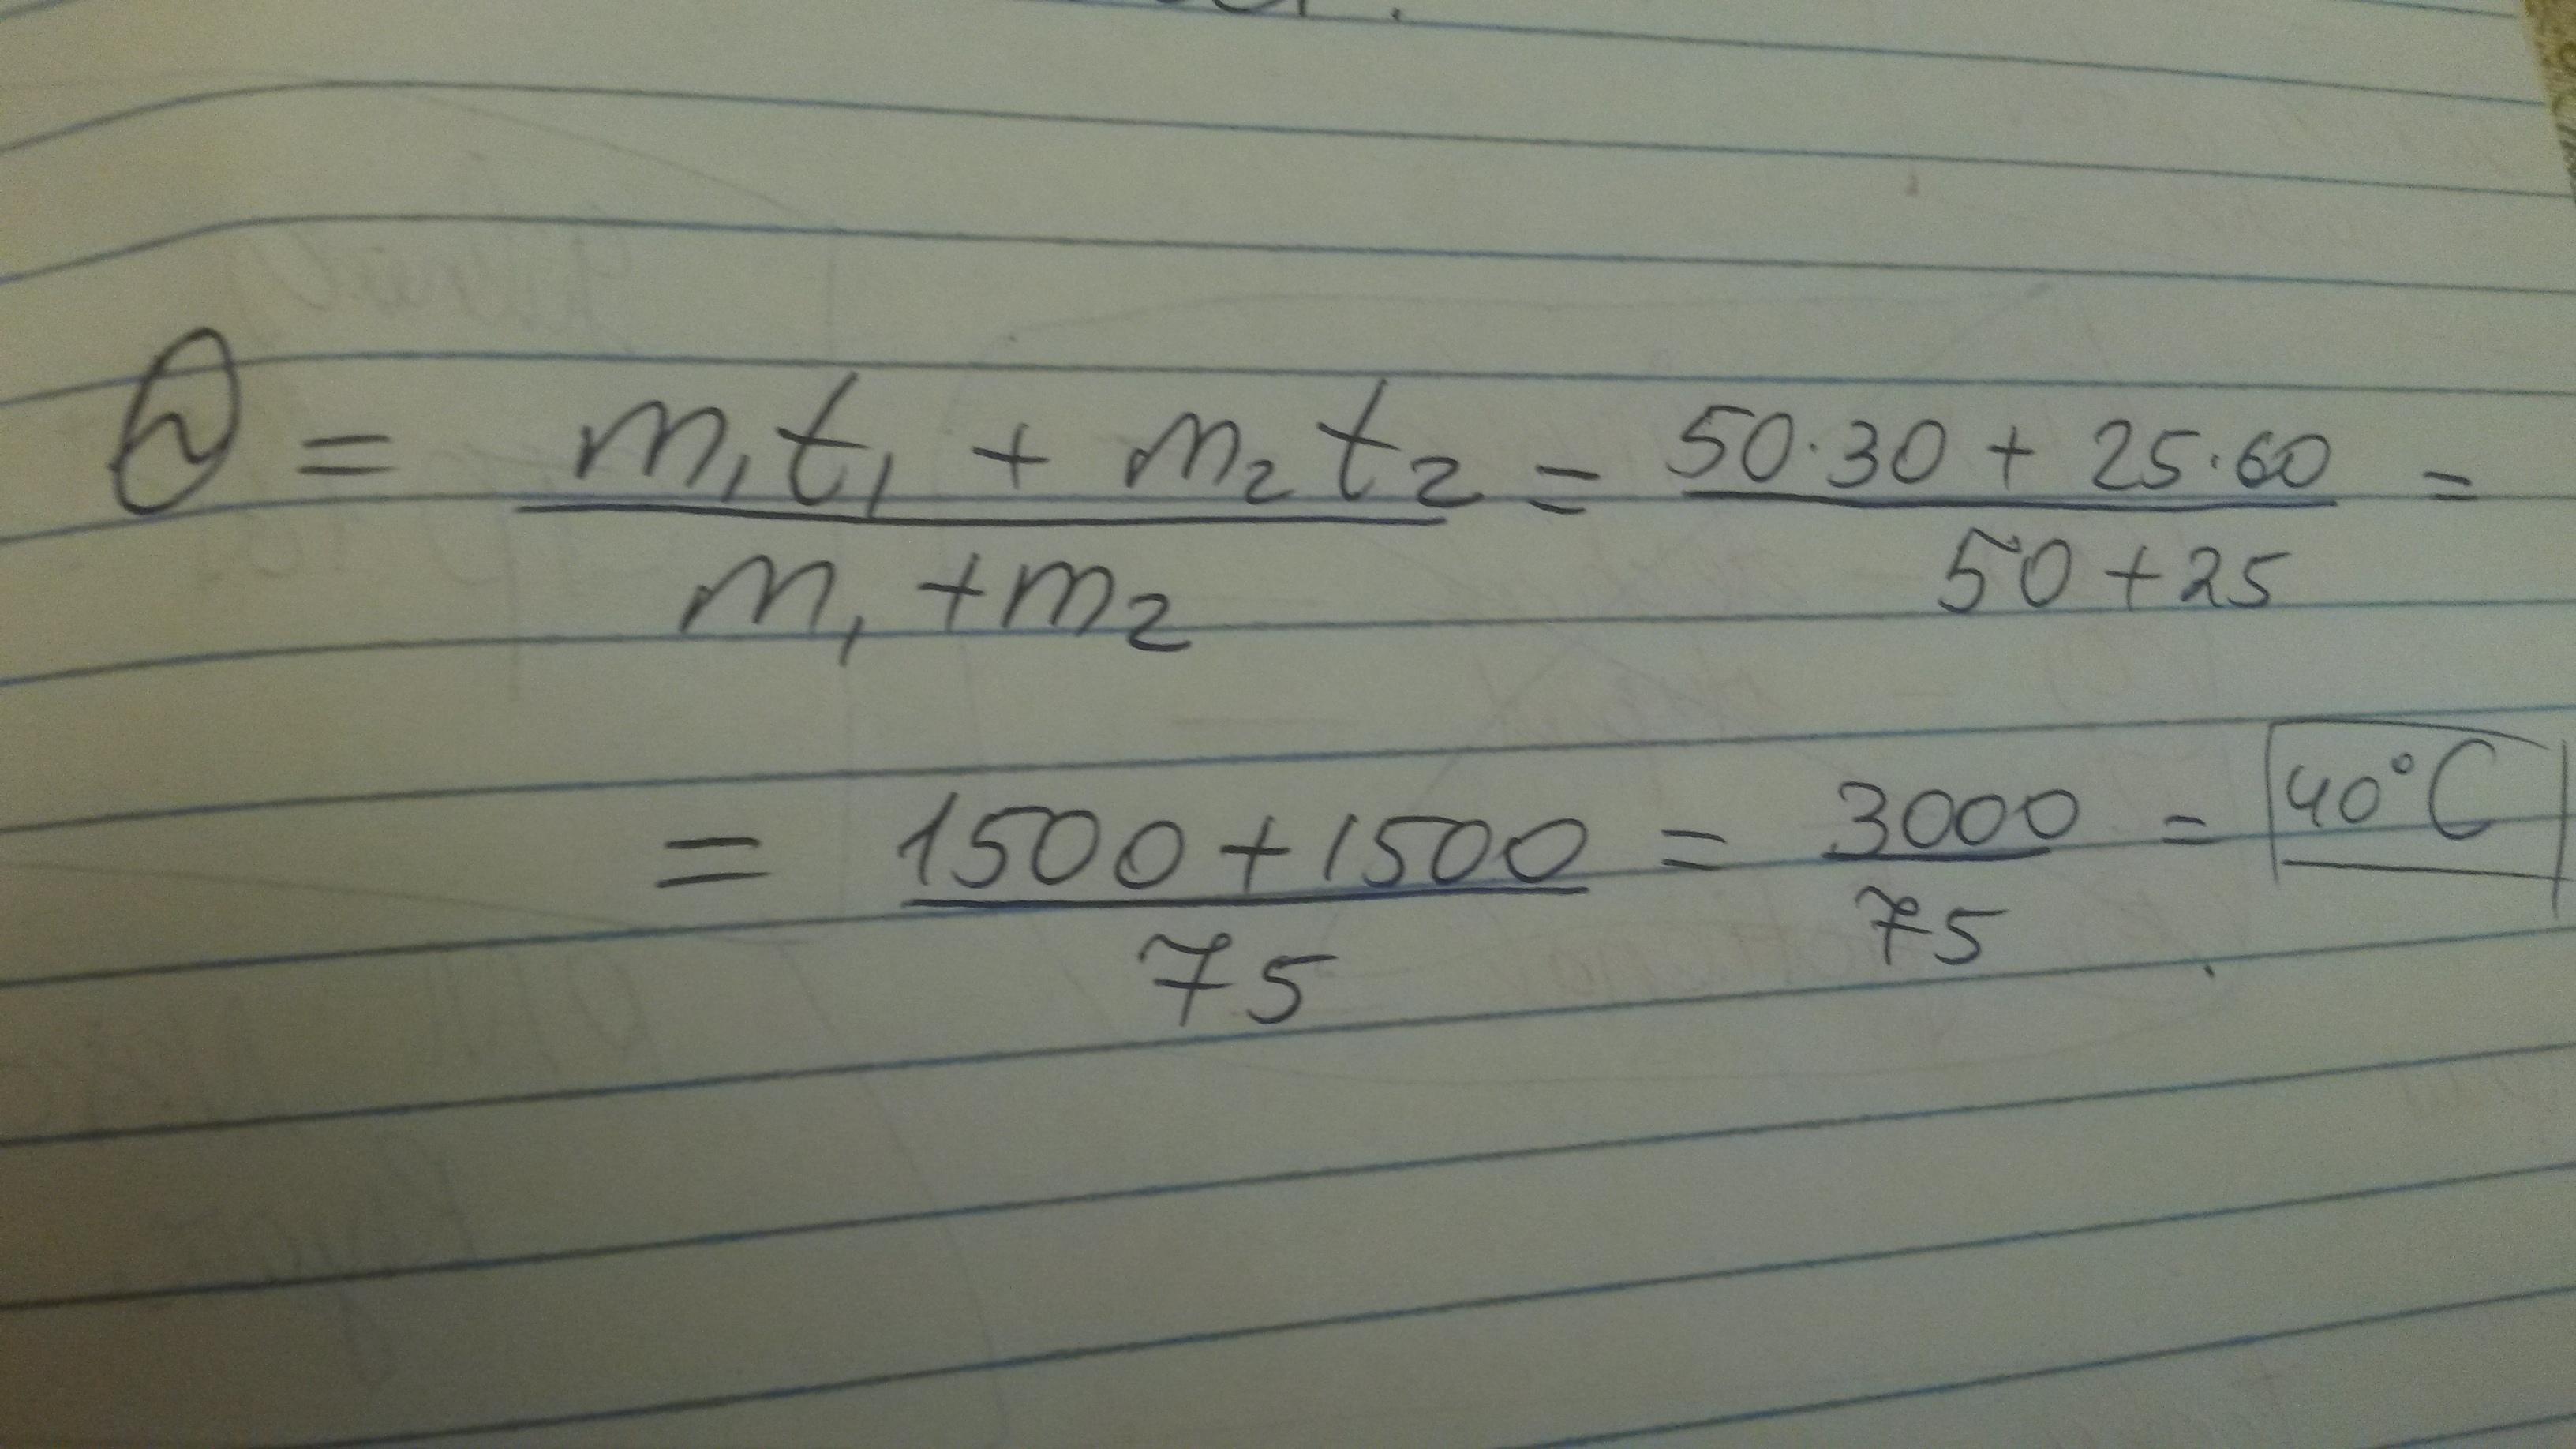 Θ = (m₁t₁ + m₂t₂)/(m₁ + m₂) = (50·30 + 25·60)/(50 + 25) =
= (1500 + 1500)/75 = 3000/75 = 40°C